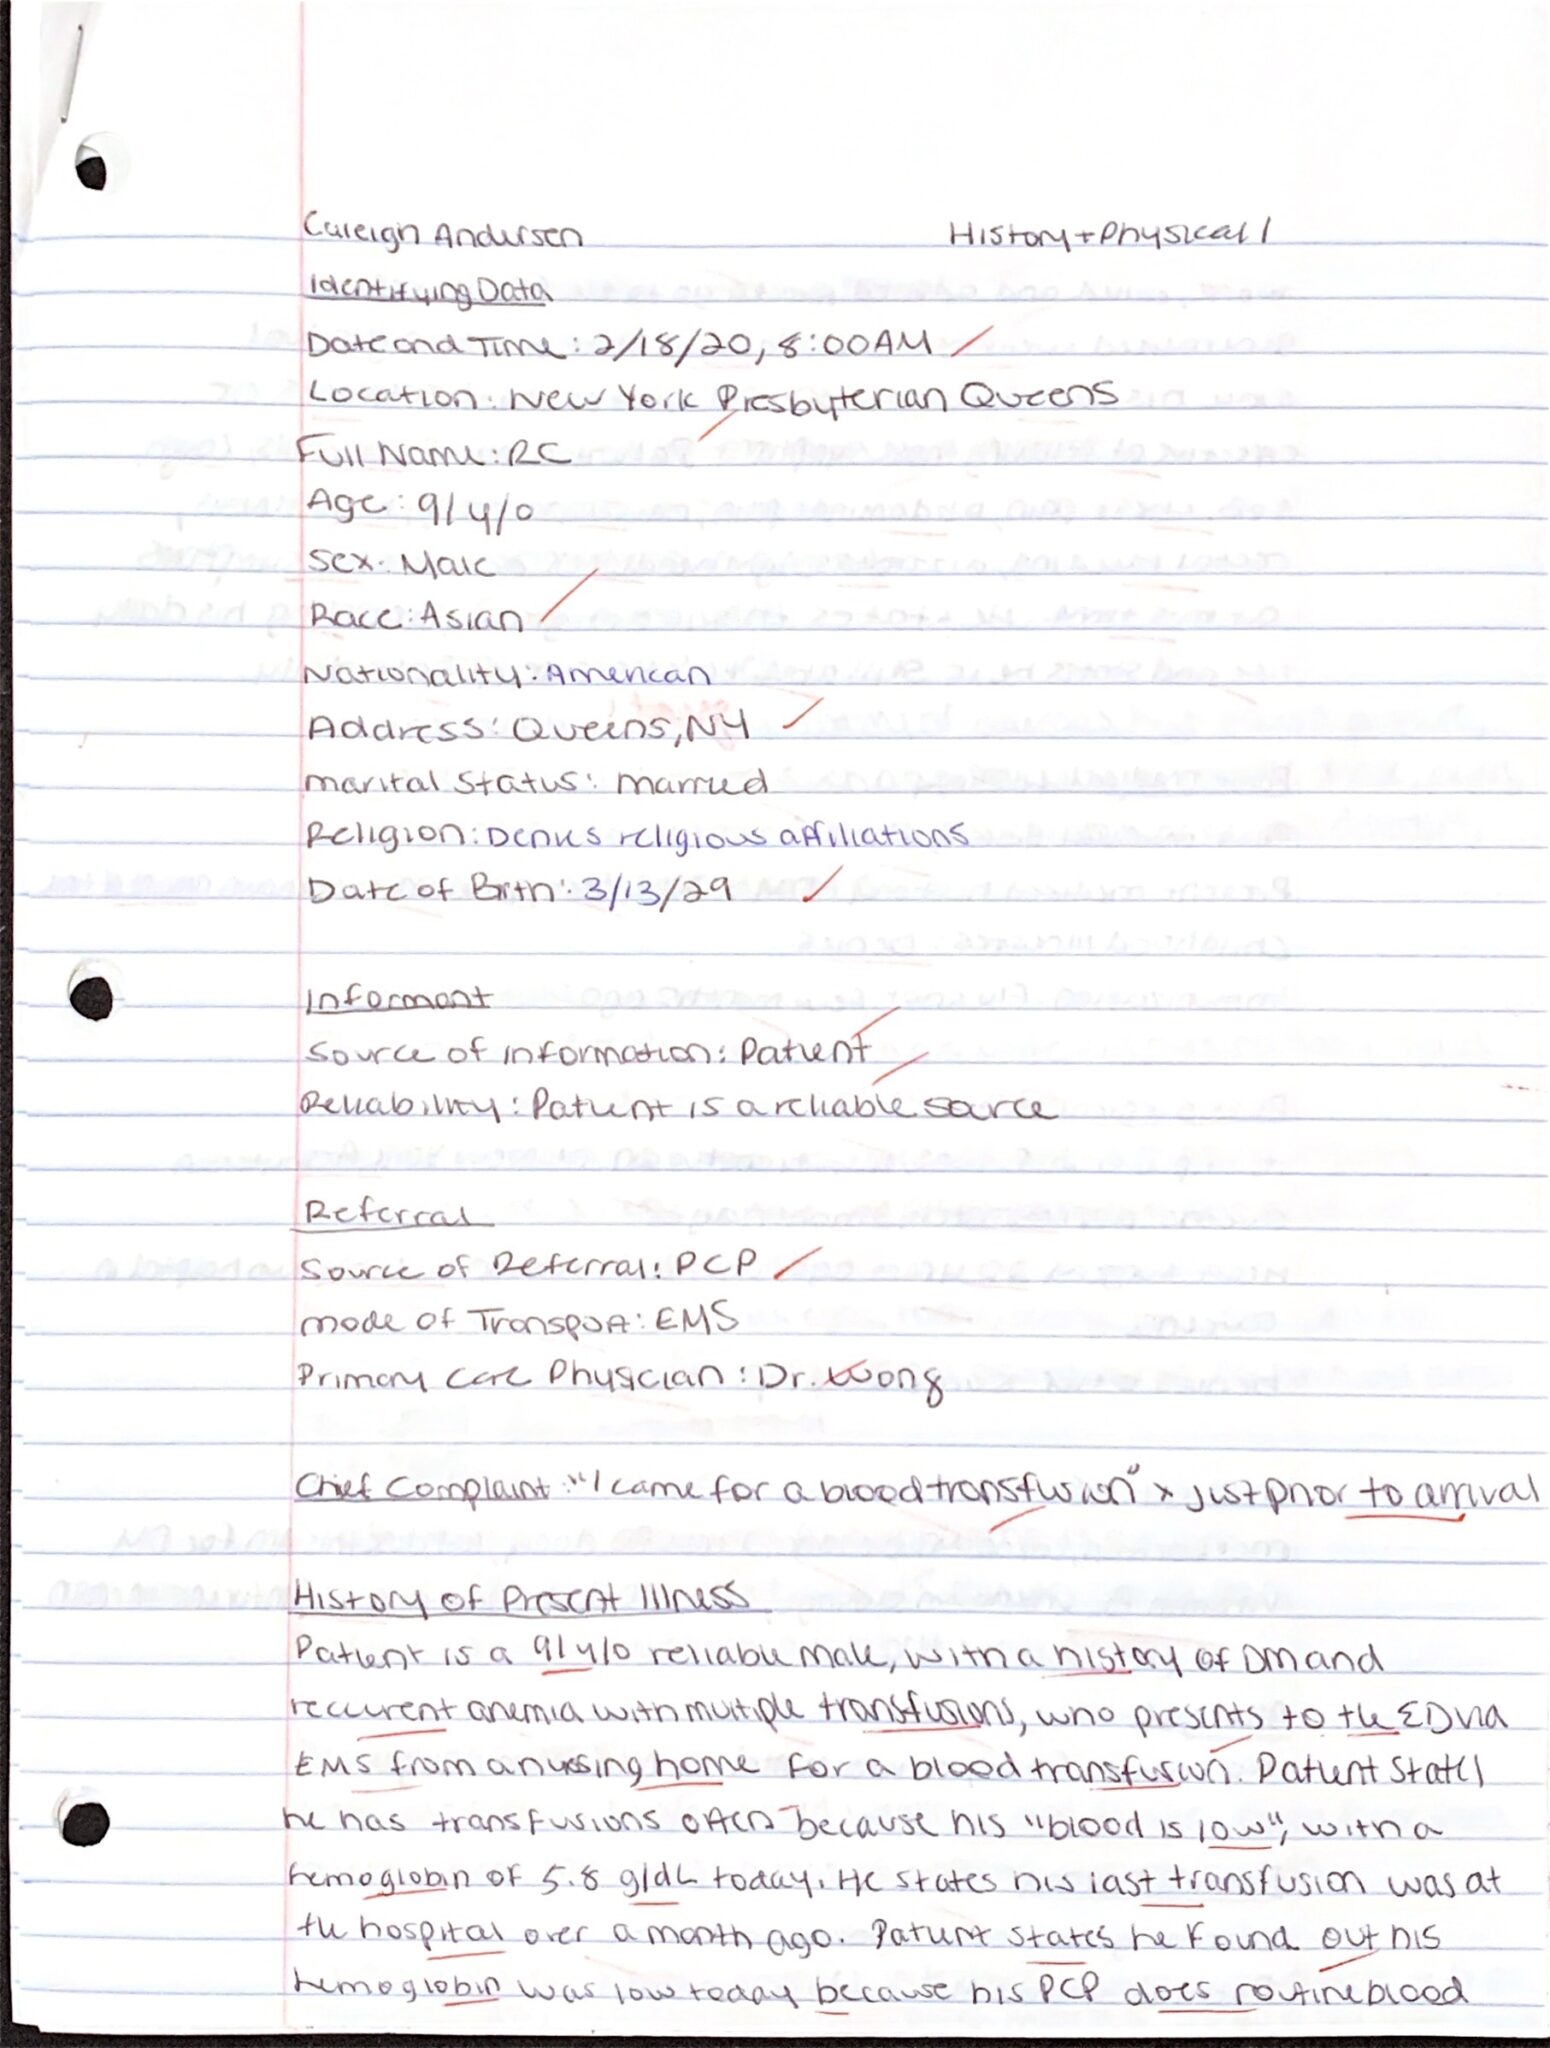 Careign Andersen History + Physical 1
Identifying Data
Date and Time: 2/18/20, 8:00AM
Location: New York Presbyterian Queens
Full Name: RC
Age: 91 y/o
Sex: Male
Race: Asian
Nationality: American
Address: Queens, NY
Marital Status: Married
Religion: Denies religious affiliations
Date of Birth: 3/13/29
Informant
Source of Information: Patient
Reliability: Patient is a reliable source
Referral
Source of Referral: PCP
Mode of Transport: EMS
Primary Care Physician: Dr. Wong
Chief Complaint: "I came for a blood transfusion" x just prior to arrival
History of Present Illness
Patient is a 91 y/o reliable male, with a history of DM and
recurrent anemia with multiple transfusions, who presents to the ED via
EMS from a nursing home for a blood transfusion. Patient states
he has transfusions often because his "blood is low", with a
hemoglobin of 5.8 g/dL today. He states his last transfusion was at
the hospital over a month ago. Patient states he found out his
hemoglobin was low today because his PCP does routine blood